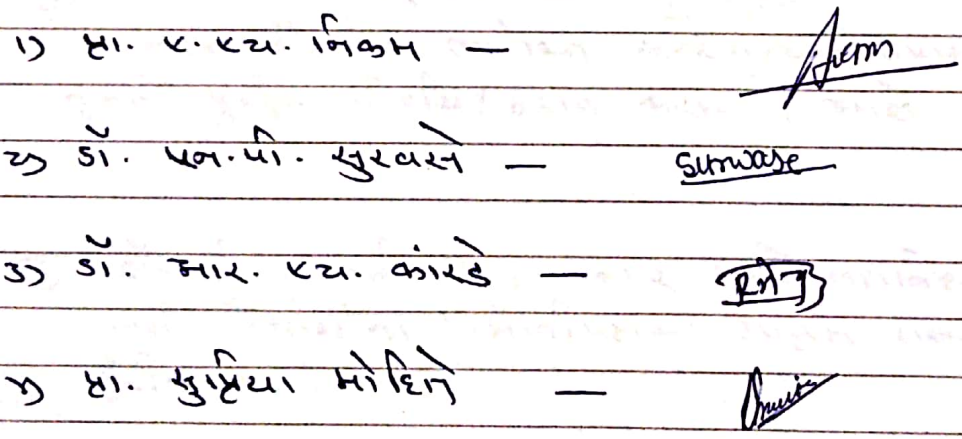 १) प्रा. ए. एच. निकम —
२) डॉ. एन. पी. सुरवसे — Surwase
३) डॉ. आर. एच. कांरडे —
४) प्रा. सुप्रिया मोहिते —